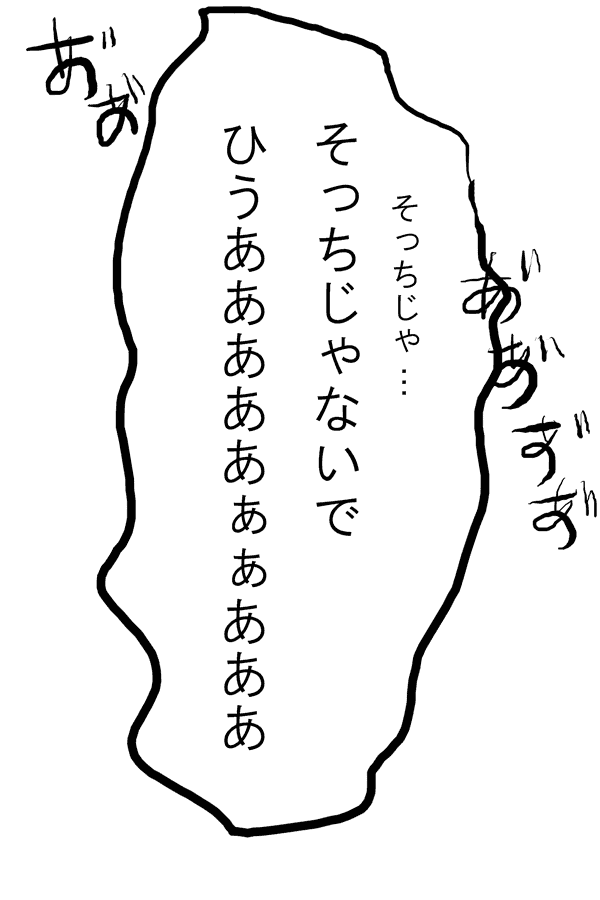 そっちじゃ…
そっちじゃないで
ひうあああああぁぁあああ
あ゛
あ゛
あ゛
あ゛